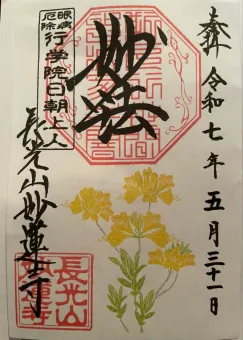 奉拝 令和七年五月三十一日
妙法
眼病
厄除
行学院日朝上人
長光山妙蓮寺
長光山
妙蓮寺